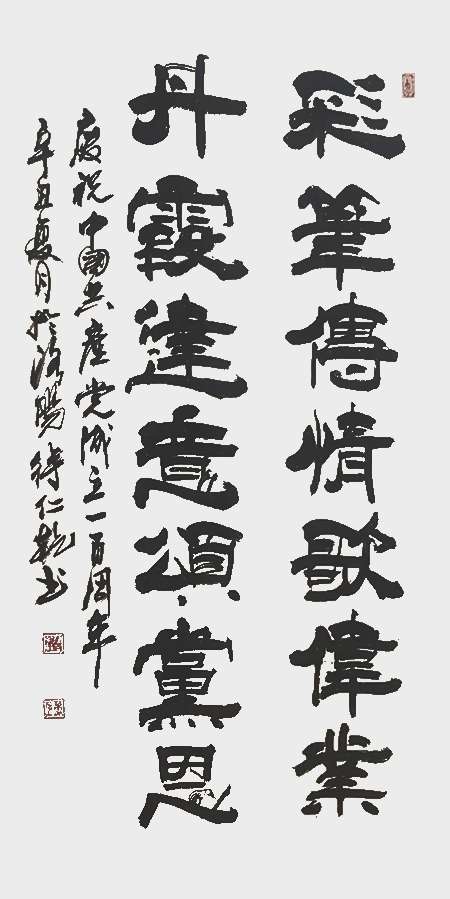 彩筆傳情歌偉業
丹霞達意頌黨恩
慶祝中國共產党成立一百周年
辛丑夏月於洛陽 仁乾书